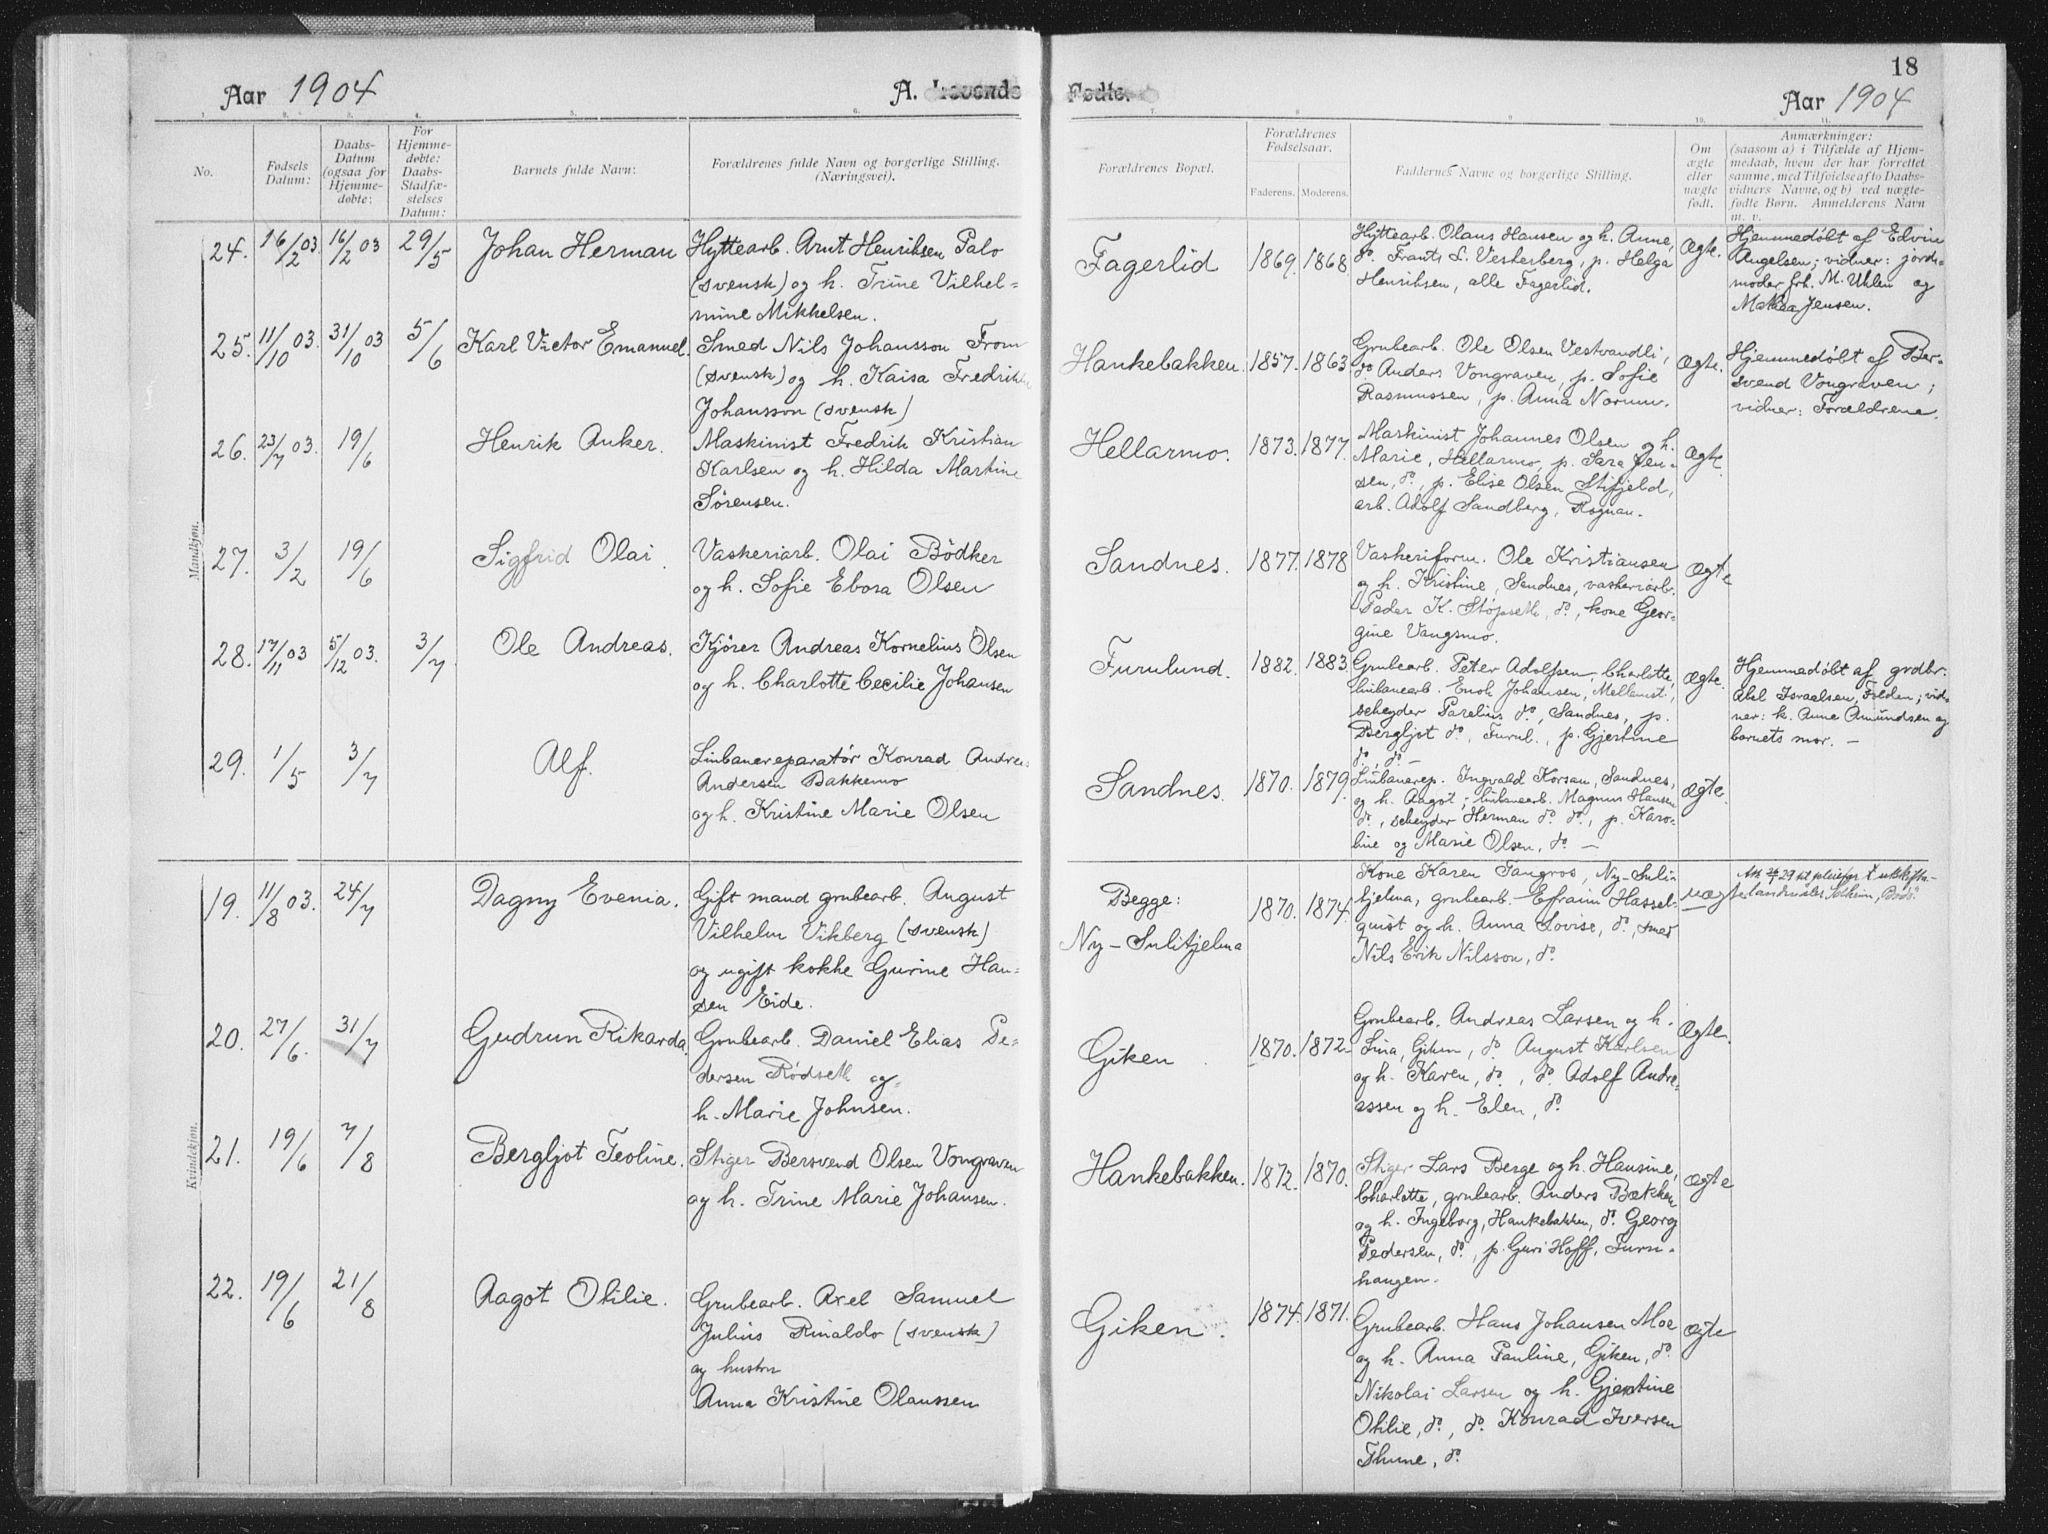 18
Aar 1904
A. Levende
Fødte.
Aar 1904
1. 2. 3. 4. 5. 6. 7. 8. 9. 10. 11.
No.
Fødsels
Datum:
Daabs-
Datum
(ogsaa for
Hjemme-
døbte:
For
Hjemme-
døbte:
Daabs-
Stadfæ-
stelses
Datum:
Barnets fulde Navn:
Forældrenes fulde Navn og borgerlige Stilling.
(Næringsvei).
Forældrenes Bopæl.
Forældrenes
Fødselsaar.
Faderens. Moderens.
Faddernes Navne og borgerlige Stilling.
Om
ægte
eller
uægte
født.
Anmærkninger:
(saasom a) i Tilfælde af Hjem-
medaab, hvem der har forrettet
samme, med Tilføielse af to Daabs-
vidners Navne, og b) ved uægte-
fødte Børn. Anmelderens Navn
m. v.
Mandkjøn.
24. 16/2 03 16/2 03 29/5 Johan Herman
Hyttearb. Arnt Henriksen Palo
(svensk) og h. Trine Vilhel=
mine Mikkelsen.
Fagerlid 1869. 1868
Hyttearb. Olaus Hansen og h. Anne,
do. Frants L. Vesterberg, p. Helga
Henriksen, alle Fagerlid.
Ægte.
Hjemmedøbt af Edvin
Angelsen; vidner: jord-
moder frk. M. Uhlen og
Jensen.
25. 11/10 03. 31/10 03 5/6 Karl Victor Emanuel.
Smed Nils Johansson From
(svensk) og h. Kaisa Fredrikke
Johansson (svensk)
Hankebakken. 1857. 1863
Grubearb. Ole Olsen Vestvandli,
do Anders Vongraven, p. Sofie
Rasmussen, p. Anna Norum.
Ægte.
Hjemmedøbt af Ber-
svend Vongraven;
vidner: Forældrene.
26. 23/7 03. 19/6 Henrik Anker.
Maskinist Fredrik Kristian
Karlsen og h. Hilda Martine
Sørensen.
Hellarmo. 1873. 1877.
Maskinist Johannes Olsen og h.
Marie, Hellarmo, p. Sara Jen-
sen, do., p. Elise Olsen Stifjeld,
arb. Adolf Sandberg, Rognan.
Ægte.
27. 3/2 19/6 Sigfrid Olai.
Vaskeriarb. Olai Bødker
og h. Sofie Ebora Olsen
Sandnes. 1877. 1878
Vaskeriform. Ole Kristiansen
og h. Kristine, Sandnes, vaskeriarb.
Peder K. Støpseth, do., kone Geor-
gine Vangsmo.
Ægte
28. 17/11 03 5/12 03. 3/7 Ole Andreas.
Kjører Andreas Kornelius Olsen
og h. Charlotte Cecilie Johansen
Furulund. 1882. 1883
Grubearb. Peter Adolfsen, Charlotte,
linbanearb. Enok Johansen, Mellomst.,
scheyder Parelius do., Sandnes, p.
Bergljot do., Furul., p. Gjertine
do., do. —
Ægte.
Hjemmedøbt af grdbr.
Abel Israelsen, Folden; vid-
ner: k. Anne Amundsen og
barnets mor. —
29. 1/5 3/7 Alf.
Linbanereparatør Konrad Andreas
Andersen Bakkemo
og h. Kristine Marie Olsen
Sandnes. 1870. 1879.
Linbanerep. Ingvald Korsan, Sandnes,
og h. Aagot; linbanearb. Magnus Hansen
do., scheyder Herman do. do., p. Karo-
line og Marie Olsen, do. —
Ægte.
Kvindekjøn.
19. 11/8 03. 24/7 Dagny Evenia.
Gift mand grubearb. August
Vilhelm Vikberg (svensk)
og ugift kokke Gurine Han-
sen Eide.
Begge:
Ny-Sulitjelma
1870. 1874.
Kone Karen Tangros, Ny-Suli-
tjelma, grubearb. Efraim Hassel-
quist og h. Anna Lovise, do., smed
Nils Erik Nilsson, do.
uægte
20. 27/6. 31/7 Gudrun Rikarda.
Grubearb. Daniel Elias Pe-
dersen Rødseth og
h. Marie Johnsen.
Giken. 1870. 1872.
Grubearb. Andreas Larsen og h.
Lina, Giken, do. August Karlsen
og h. Karen, do., do. Adolf Andre-
assen og h. Elen, do.
Ægte.
21. 19/6 7/8 Bergljot Teoline.
Stiger Bersvend Olsen Vongraven
og h. Trine Marie Johansen.
Hankebakken. 1872. 1870.
Stiger Lars Berge og h. Hansine,
Charlotte, grubearb. Anders Bækken
og h. Ingeborg, Hankebakken, do. Georg
Pedersen, do., p. Guri Hoff, Furu-
haugen.
Ægte
22. 19/6 21/8 Aagot Otilie.
Grubearb. Axel Samuel
Julius Rinaldo (svensk)
og hustru
Anna Kristine Olaussen
Giken. 1874. 1871.
Grubearb. Hans Johansen Moe
og h. Anna Pauline, Giken, do.
Nikolai Larsen og h. Gjertine
Otilie, do., do. Konrad Iversen
Thune, do.
Ægte